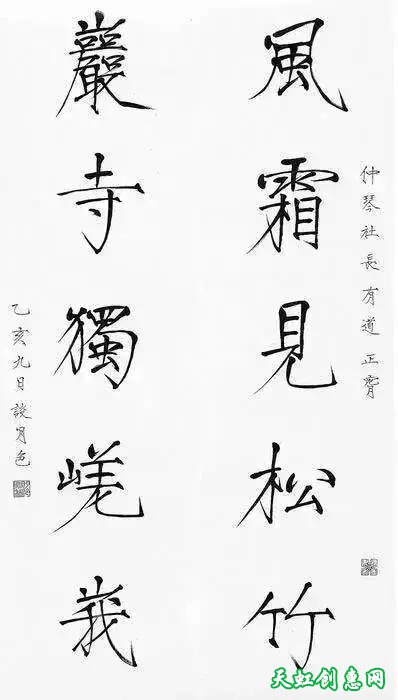 仲琴社長有道 正
風霜見松竹
巖寺獨嵯峩
乙亥九日談月色
天虹创意网